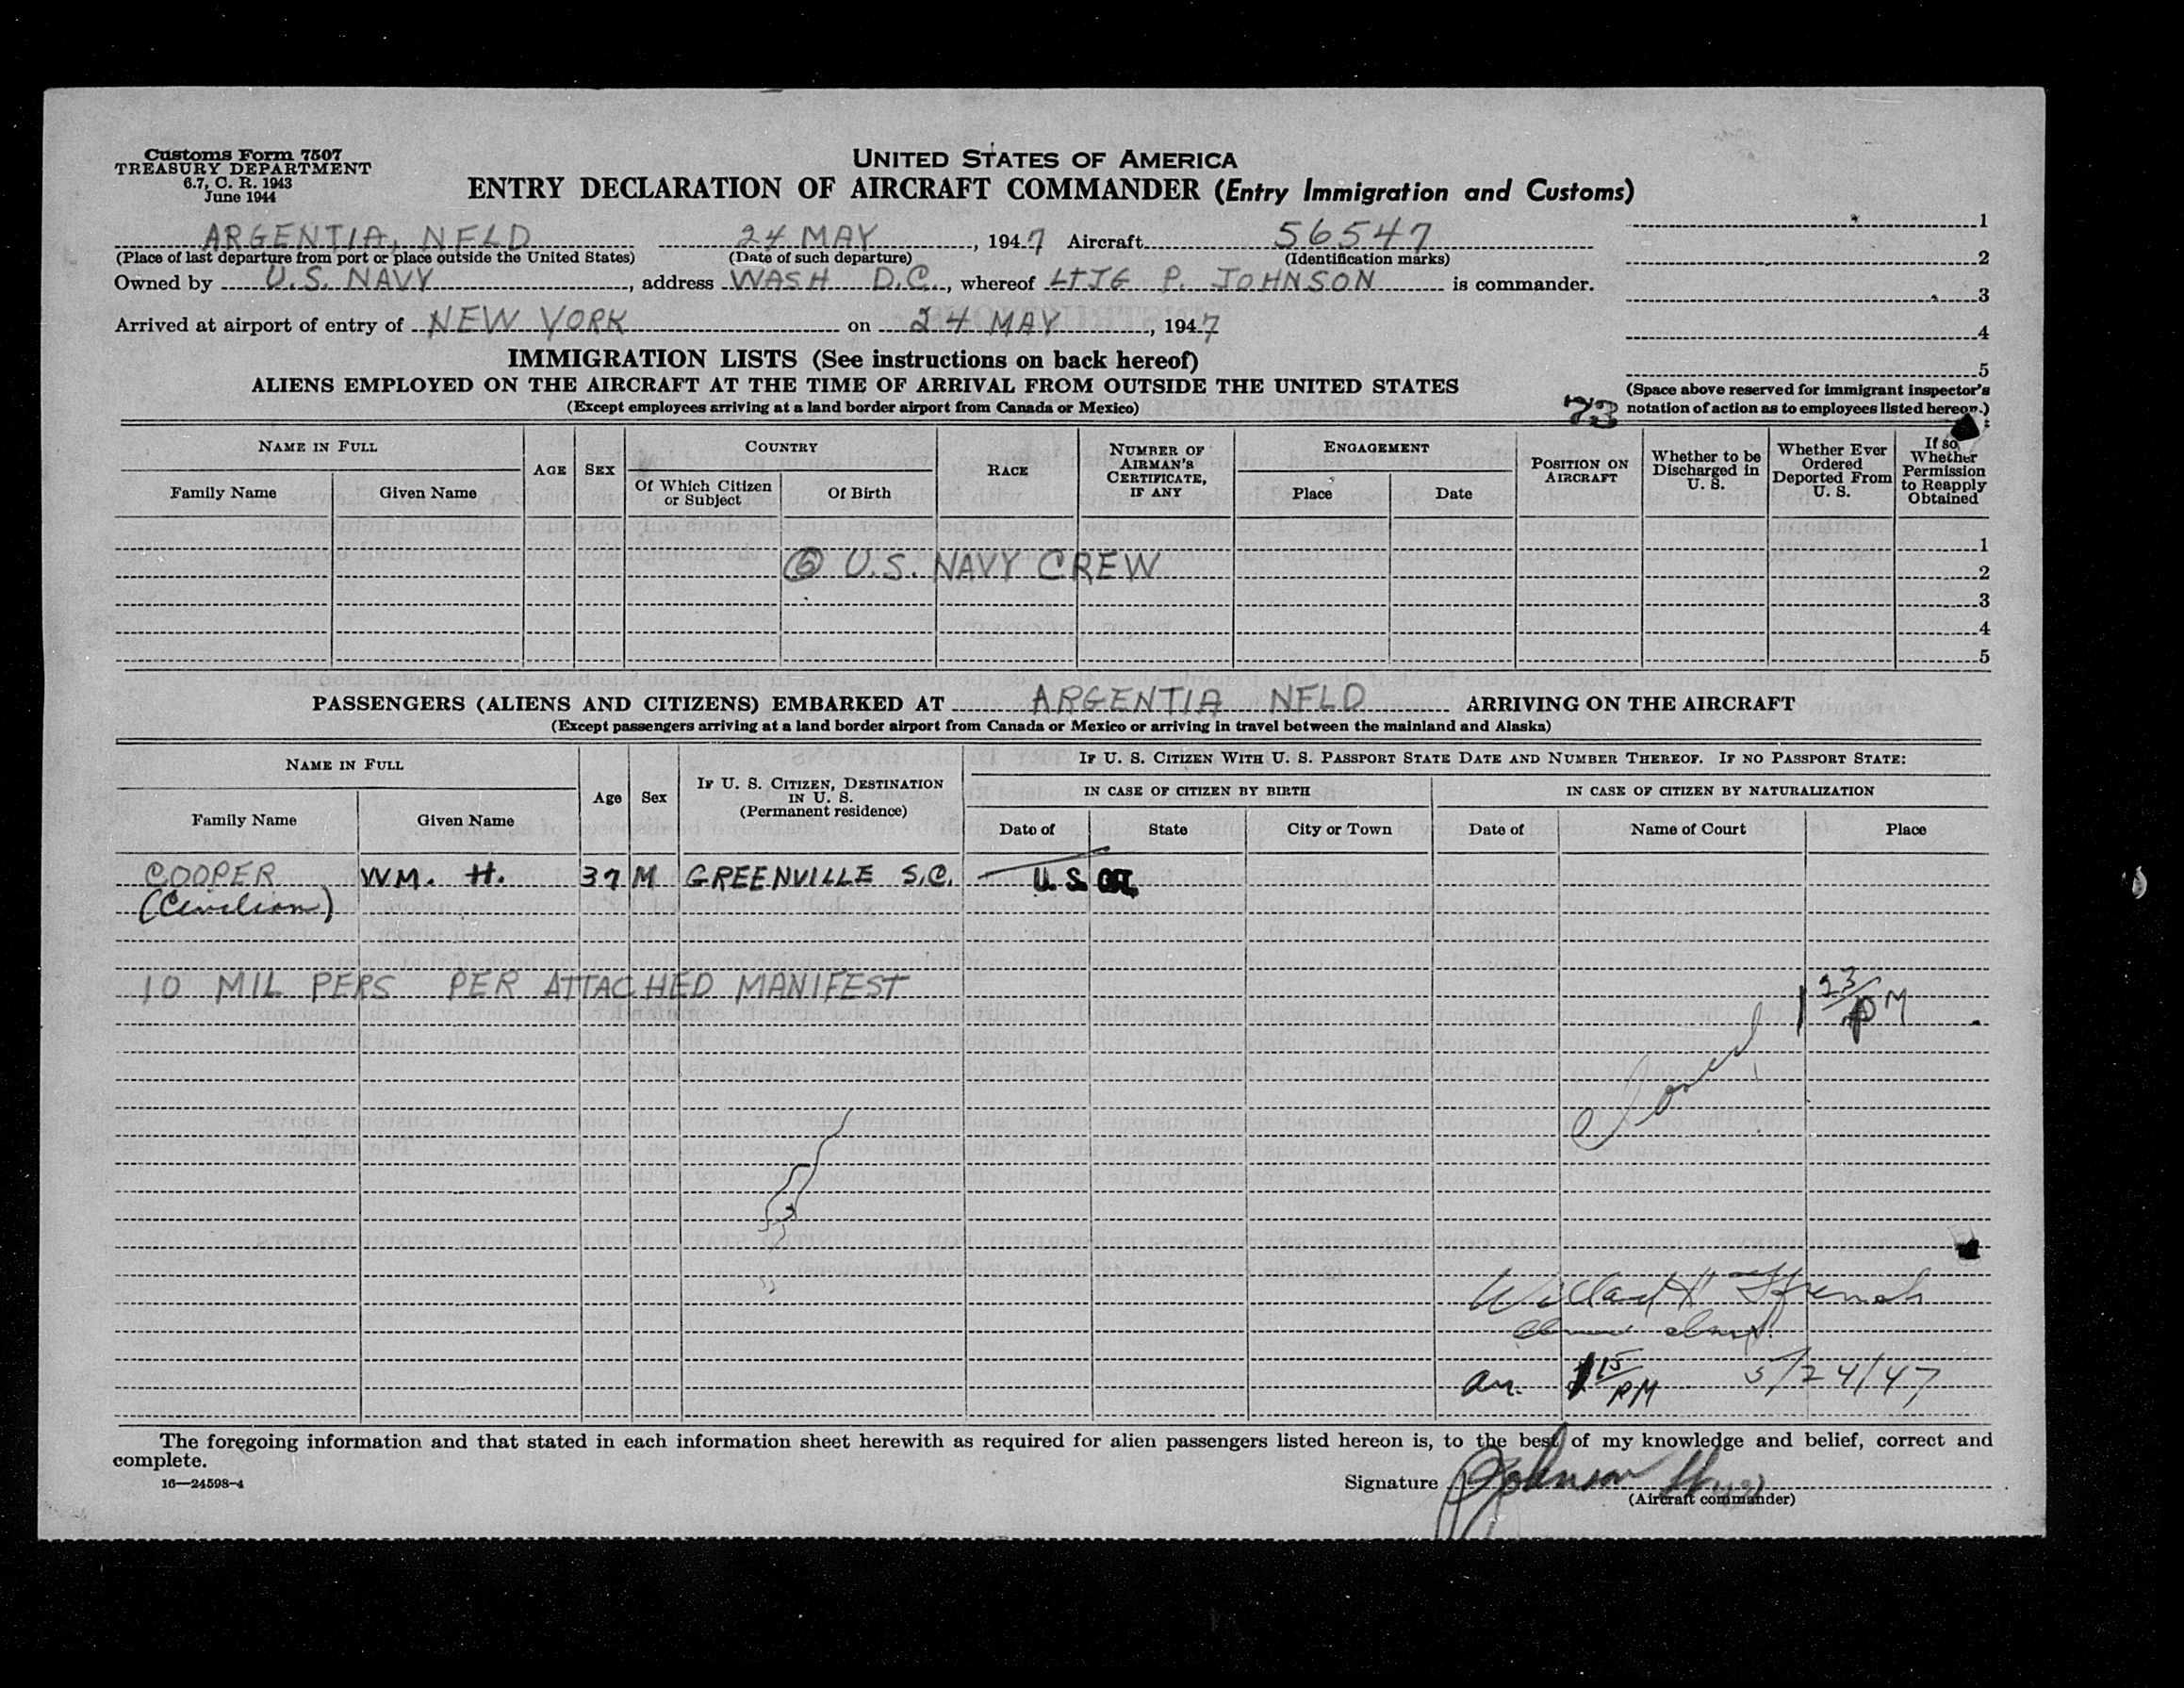 Customs Form 7507
TREASURY DEPARTMENT
6.7, C. R. 1943
June 1944
UNITED STATES OF AMERICA
ENTRY DECLARATION OF AIRCRAFT COMMANDER (Entry Immigration and Customs)
ARGENTIA, NFLD 24 MAY, 1947 Aircraft 56547
(Place of last departure from port or place outside the United States) (Date of such departure) (Identification marks)
Owned by U.S. NAVY, address WASH D.C., whereof LTJG P. JOHNSON is commander.
Arrived at airport of entry of NEW YORK on 24 MAY, 1947
1
2
3
4
5
(Space above reserved for immigrant inspector's
notation of action as to employees listed hereon.)
IMMIGRATION LISTS (See instructions on back hereof)
ALIENS EMPLOYED ON THE AIRCRAFT AT THE TIME OF ARRIVAL FROM OUTSIDE THE UNITED STATES
(Except employees arriving at a land border airport from Canada or Mexico)
73
NAME IN FULL
Family Name Given Name
AGE
SEX
COUNTRY
Of Which Citizen
or Subject
Of Birth
RACE
NUMBER OF
AIRMAN'S
CERTIFICATE,
IF ANY
ENGAGEMENT
Place Date
POSITION ON
AIRCRAFT
Whether to be
Discharged in
U. S.
Whether Ever
Ordered
Deported From
U. S.
If so
Whether
Permission
to Reapply
Obtained
1
6 U.S. NAVY CREW 2
3
4
5
PASSENGERS (ALIENS AND CITIZENS) EMBARKED AT ARGENTIA NFLD ARRIVING ON THE AIRCRAFT
(Except passengers arriving at a land border airport from Canada or Mexico or arriving in travel between the mainland and Alaska)
NAME IN FULL
Family Name Given Name
Age
Sex
IF U. S. CITIZEN, DESTINATION
IN U. S.
(Permanent residence)
IF U. S. CITIZEN WITH U. S. PASSPORT STATE DATE AND NUMBER THEREOF. IF NO PASSPORT STATE:
IN CASE OF CITIZEN BY BIRTH IN CASE OF CITIZEN BY NATURALIZATION
Date of State City or Town Date of Name of Court Place
COOPER WM. H. 37 M GREENVILLE S.C. U. S.
(Civilian)
10 MIL PERS PER ATTACHED MANIFEST
1 23/PM
arr. 1 15/PM 5/24/47
The foregoing information and that stated in each information sheet herewith as required for alien passengers listed hereon is, to the best of my knowledge and belief, correct and
complete.
16—24598-4
Signature Johnson
(Aircraft commander)